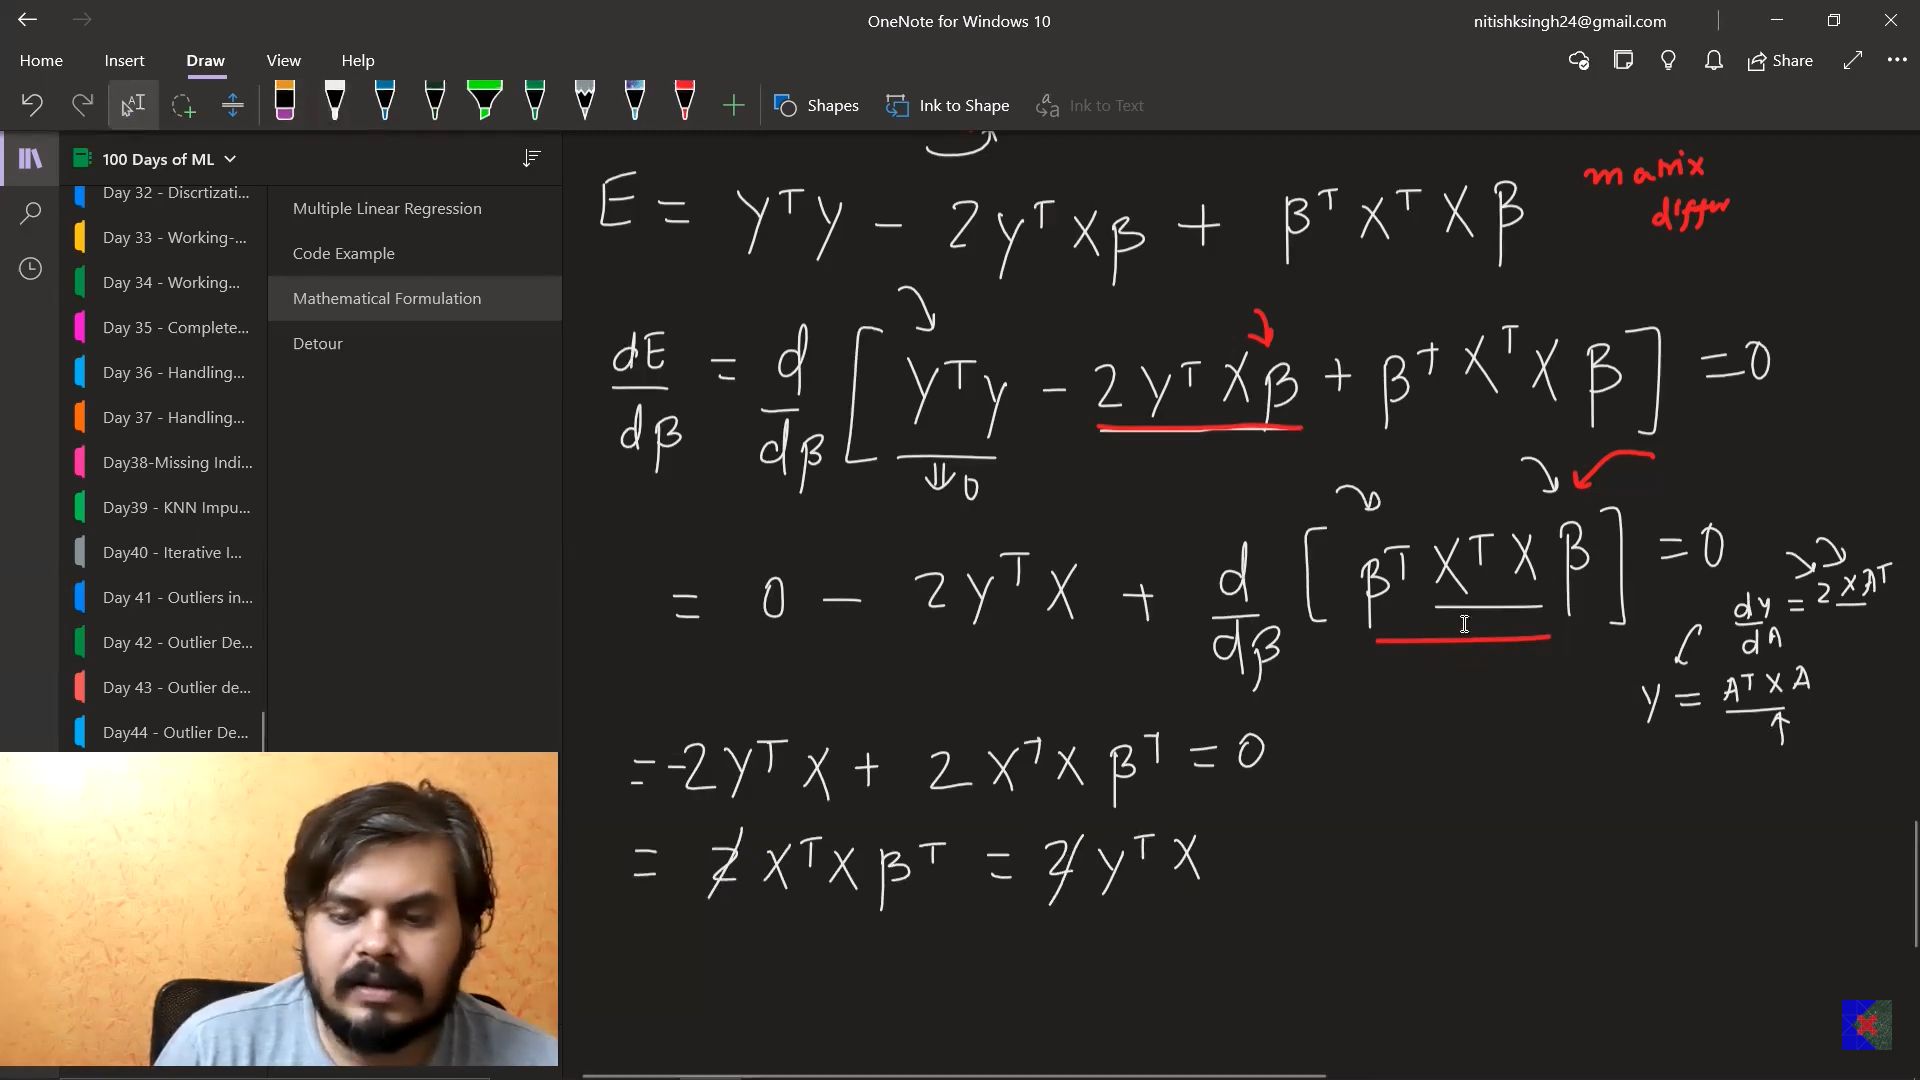 OneNote for Windows 10
nitishksingh24@gmail.com
Home Insert Draw View Help
Share
Shapes Ink to Shape Ink to Text
100 Days of ML
Day 32 - Discrtizati...
Day 33 - Working-...
Day 34 - Working...
Day 35 - Complete...
Day 36 - Handling...
Day 37 - Handling...
Day38-Missing Indi...
Day39 - KNN Impu...
Day40 - Iterative I...
Day 41 - Outliers in...
Day 42 - Outlier De...
Day 43 - Outlier de...
Day44 - Outlier De...
Multiple Linear Regression
Code Example
Mathematical Formulation
Detour
E = yᵀy - 2yᵀXβ + βᵀXᵀXβ
matrix
differ
dE/dβ = d/dβ [yᵀy - 2yᵀXβ + βᵀXᵀXβ] = 0
⇓ 0
= 0 - 2yᵀX + d/dβ [βᵀXᵀXβ] = 0
dy/dA = 2XAᵀ
y = AᵀXA
= -2yᵀX + 2XᵀXβᵀ = 0
= 2XᵀXβᵀ = 2yᵀX